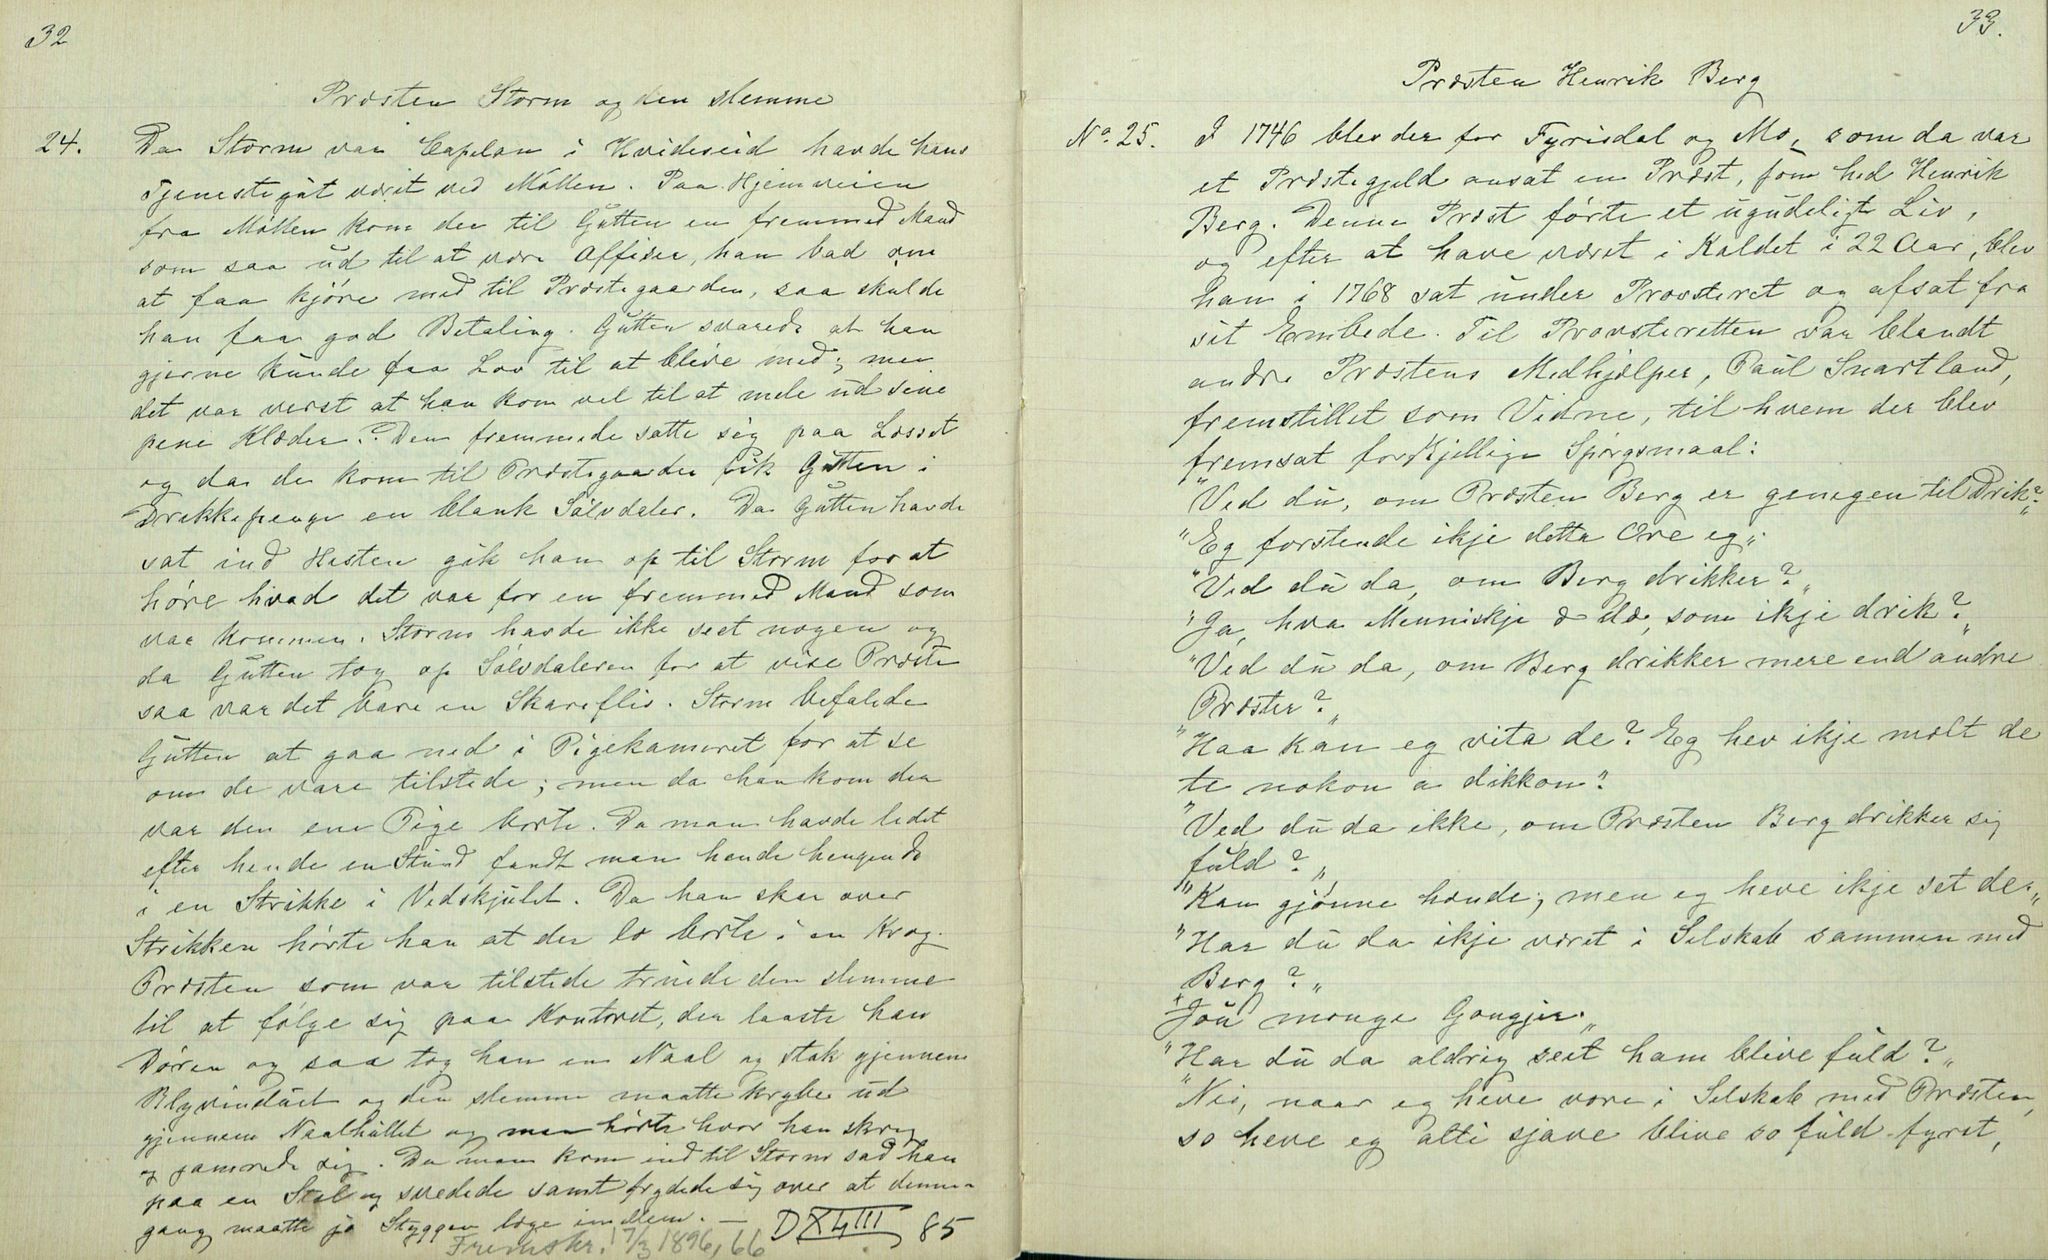 32
Præsten Storm og den slemme
24. Da Storm var Capelan i Hvideseid havde hans
Tjenestegut været ved Møllen. Paa Hjemveien
fra Møllen kom der til Gutten en fremmed Mand
som saa ud til at være Affiser, han bad om
at faa kjøre med til Præstegaarden, saa skulde
han faa god Betaling. Gutten svarede at han
gjerne kunde faa Lov til at blive med; men
det var verst at han kom vel til at mele ud sine
pene Klæder. Den fremmede satte sig paa Læsset
og da de kom til Præstegaarden fik Gutten i
Drikkepenge en blank Sølvdaler. Da Gutten havde
sat ind Hesten gik han op til Storm for at
høre hvad det var for en fremmed Mand som
var kommen. Storm havde ikke seet nogen og
da Gutten tog op Sølvdaleren for at vise Præsten
saa var det bare en Skareflis. Storm befalede
Gutten at gaa ned i Pigekameret for at se
om de vare tilstede; men da han kom der
var den ene Pige borte. Da man havde ledet
efter hende en Stund fandt man hende hengende
i en Strikke i Vedskjulet. Da han skar over
Strikken hørte han at der lo borte i en Krog.
Præsten som var tilstede truede den slemme
til at følge sig paa Kontoret, der laaste han
Døren og saa tog han en Naal og stak gjennem
Blyvinduet og den slemme maatte krybe ud
gjennem Naalhullet og man hørte hvor han skreg
og jamrede sig. Da man kom ind til Storm sad han
paa en Stol og svedede samt frydede sig over at denne
gang maatte jo Styggen bøge imellem. — D XLIII 85
Fremskr. 17/3 1896, 66
33.
Præsten Henrik Berg
No. 25. I 1746 blev der for Fyrisdal og Mo, som da var
et Præstegjeld ansat en Præst, som hed Henrik
Berg. Denne Præst førte et ugudeligt Liv,
og efter at have været i Kaldet i 22 Aar, blev
han i 1768 sat under Provsteret og afsat fra
sit Embede. Til Provsteretten var blandt
andre Præstens Medhjælper, Paul Snartland,
fremstillet som Vidne, til hvem der blev
fremsat forskjellige Spørgsmaal:
"Ved du, om Præsten Berg er genegen til Drik?"
"Eg forstende ikje detta Ore eg".
"Ved du da, om Berg drikker?"
"Ja, hva Menniskje æ dæ, som ikje drik?"
"Ved du da, om Berg drikker mere end andre
Præster?"
"Haa kan eg vita de? Eg hev ikje mælt de
te nokon a dikkon".
"Ved du da ikke, om Præsten Berg drikker sig
fuld?"
"Kan gjønne hænde; men eg heve ikje set de."
"Har du da ikje været i Selskab sammen med
Berg?"
"Jou monge Gongjir."
"Har du da aldrig seet ham blive fuld?"
"Nei, naar eg heve vore i Selskab med Præsten,
so heve eg alti sjave blive so fuld fyrst,